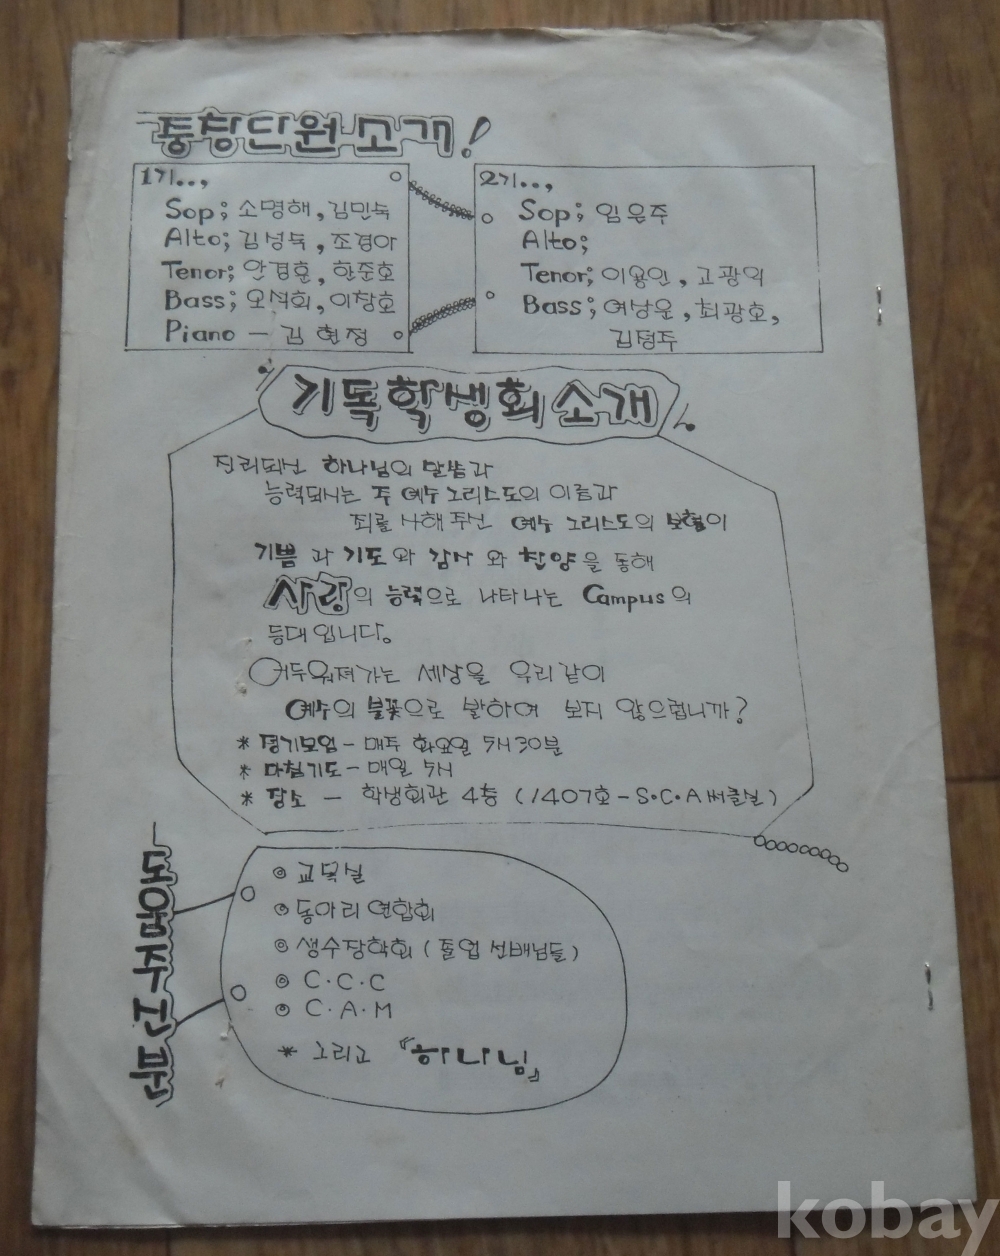 중창단원소개!
1기..,
Sop; 소명해, 김민숙
Alto; 김성숙, 조경아
Tenor; 안경훈, 한준호
Bass; 오석희, 이창호
Piano - 김현정
2기..,
Sop; 임은주
Alto;
Tenor; 이용인, 고광익
Bass; 여상운, 최광호,
김정주
기독학생회소개
진리되신 하나님의 말씀과
능력되시는 주 예수 그리스도의 이름과
죄를 사해 주신 예수 그리스도의 보혈이
기쁨과 기도와 감사와 찬양을 통해
사랑의 능력으로 나타나는 Campus의
등대입니다.
어두워져가는 세상을 우리같이
예수의 불꽃으로 밝히어 보지 않으렵니까?
* 정기모임 - 매주 화요일 5H 30분
* 마침기도 - 매일 5H
* 장소 - 학생회관 4층 (1407호 - S·C·A 써클실)
도와주신분
◎ 교목실
◎ 동아리 연합회
◎ 생수장학회 (졸업 선배님들)
◎ C·C·C
◎ C·A·M
* 그리고 『하나님』
kobay